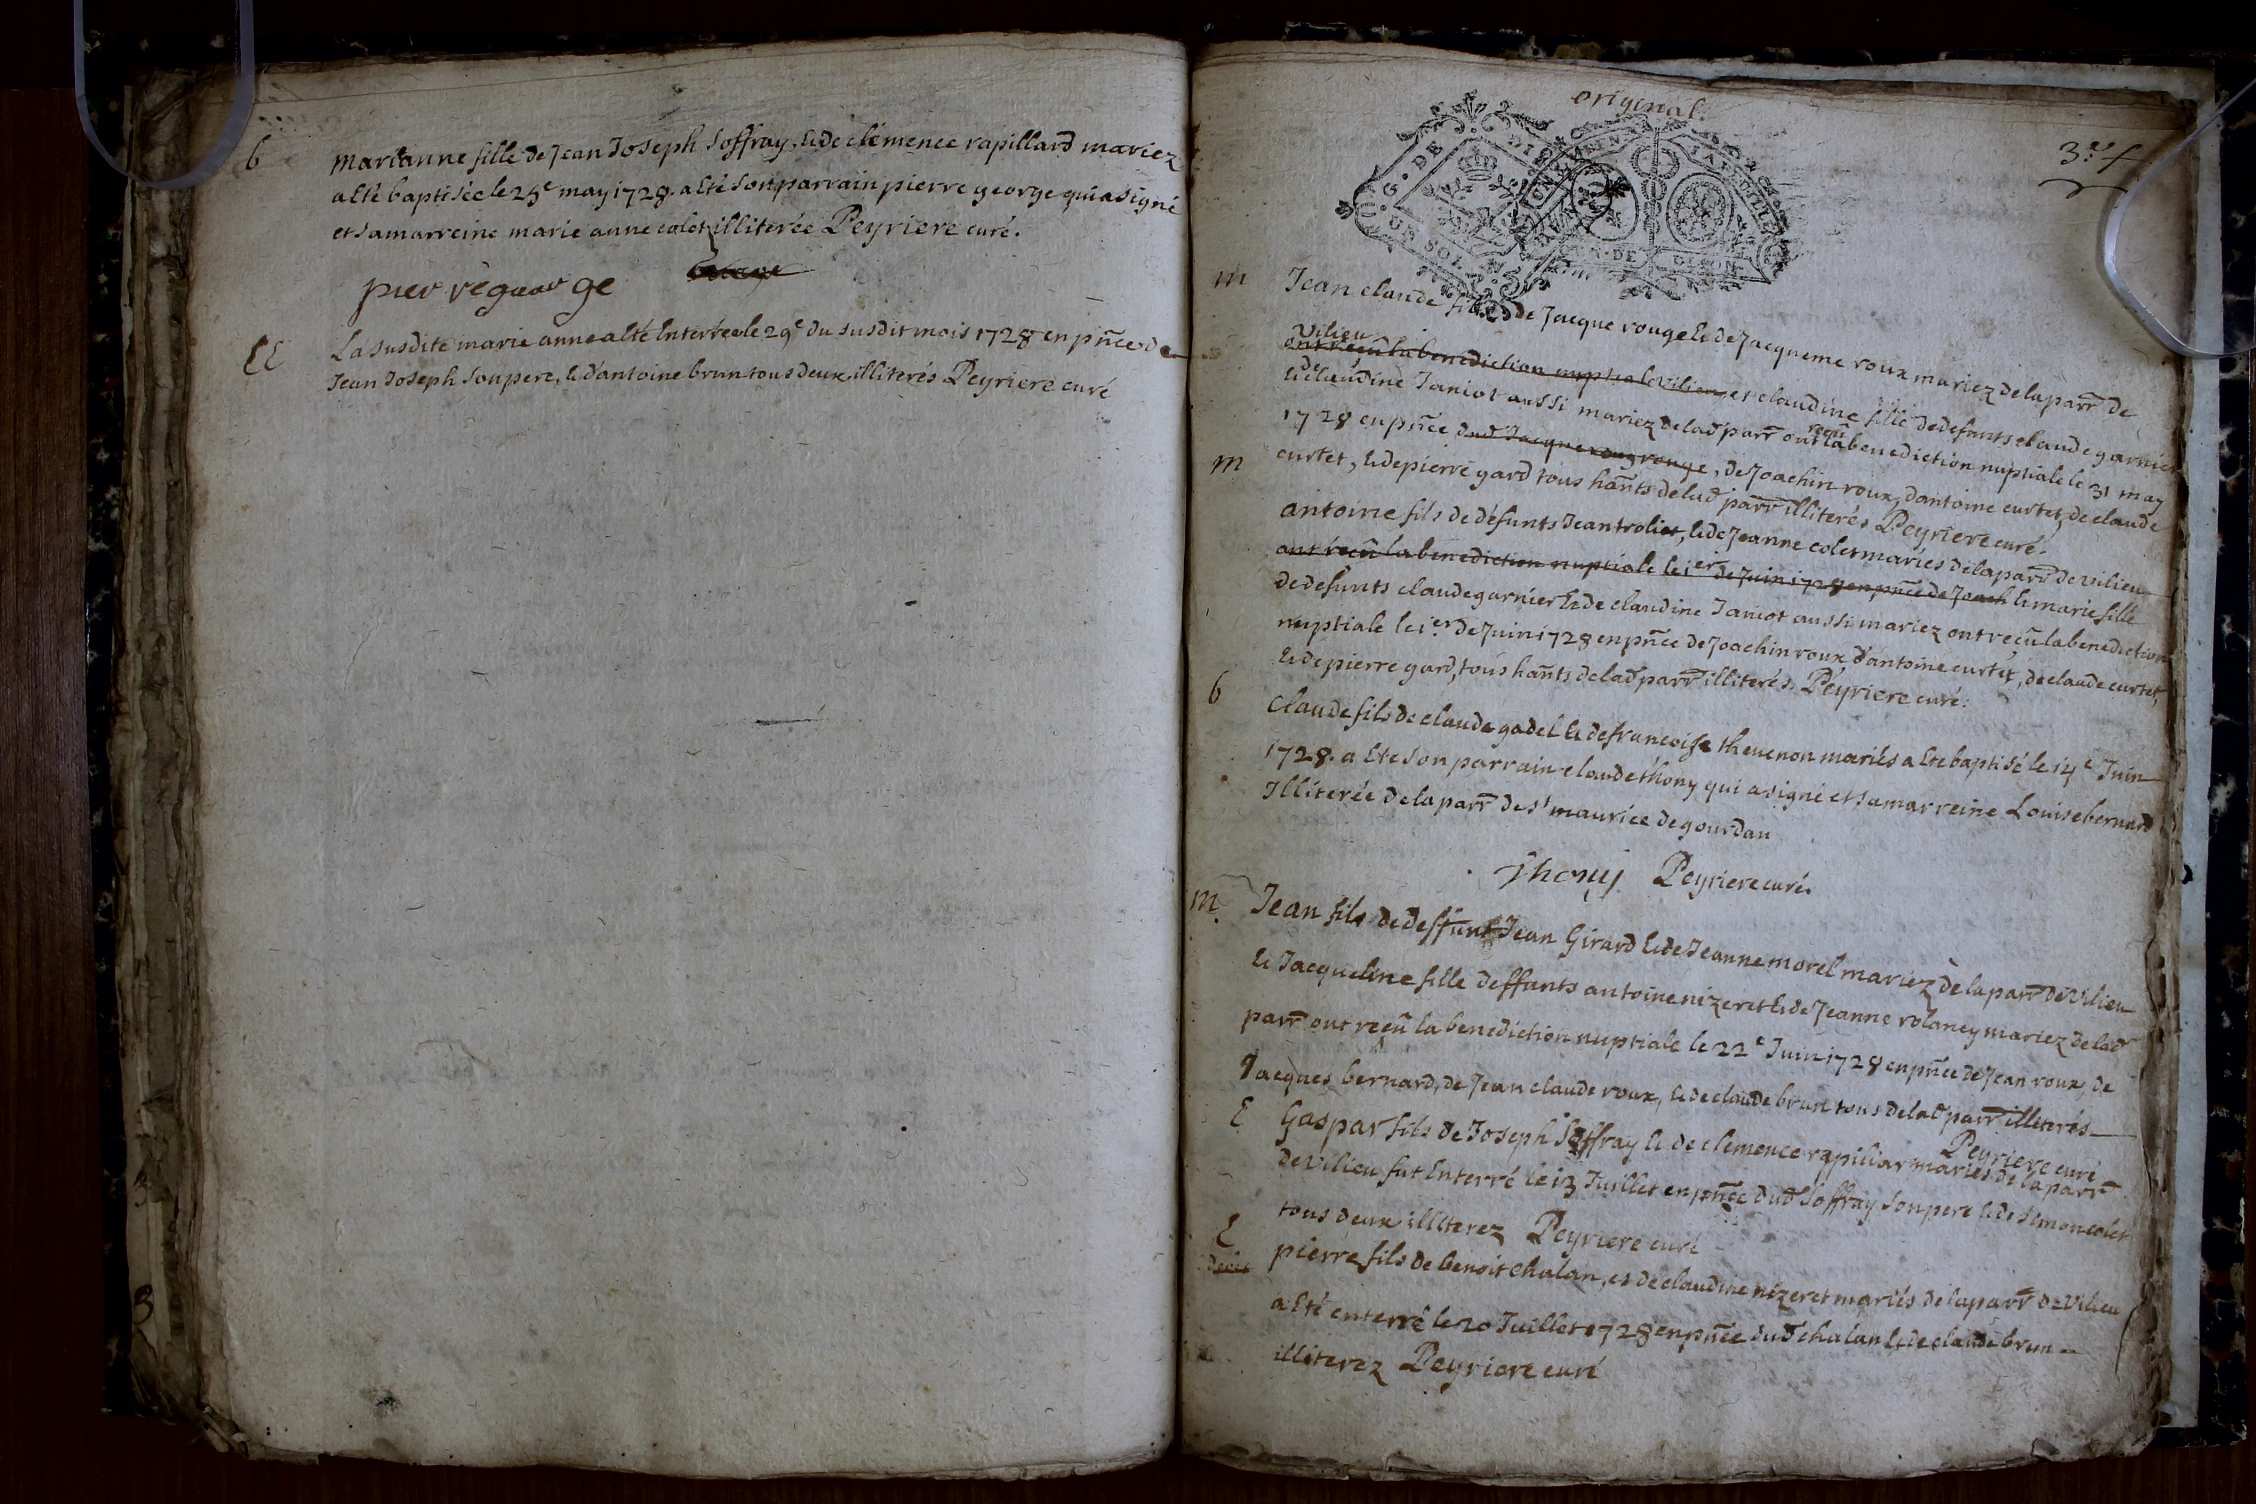 b
marianne fille de Jean Joseph Soffray, & de clémence rapillard mariez
a été baptisée le 25e may 1728. a été son parrain pierre george qui a signé
et sa marreine marie anne colet illiterée Peyriere curé.
pier régeor ge
EE
La susdite marie anne a été Interrée le 29e du susdit mois 1728 en pñce de
Jean Joseph son pere, & d'antoine brun tous deux illiterés Peyriere curé
original.
3.e f
G. DE
UN SOL
DIJON
m
Jean claude fils de Jacque rouge & de Jacqueme roux mariez de la parr de
Vilieu
ont reçû la benediction nuptiale Vilieu et claudine fille de defunts claude garnier
& claudine Janiot aussi mariez de lad parr ont reçû la benediction nuptiale le 31 may
1728 en pñce dud Jacque rouge, de Joachin roux, d'antoine curtet, de claude
curtet, & de pierre gard tous hants de lad parr illiterés Peyriere curé.
m
antoine fils de défunts Jean troliet, & de Jeanne colet mariés de la parr de Vilieu
ont reçû la benediction nuptiale le 1er de Juin 1728 en pñce de Joach & marie fille
de defunts claude garnier & de claudine Janiot aussi mariez ont reçû la benediction
nuptiale le 1er de Juin 1728 en pñce de Joachin roux d'antoine curtet, de claude curtet,
& de pierre gard, tous hants de lad parr illiterés. Peyriere curé.
b
Claude fils de claude gadel & de francoise theuenon mariés a été baptisé le 14e Juin
1728. a été son parrain claude thony qui a signé et sa marreine Louise bernard
Illiterée de la parr de st maurice de gourdan
Thony Peyriere curé.
m
Jean fils de deffunt Jean Girard & de Jeanne morel mariez de la parr de Vilieu
& Jacqueline fille deffunts antoine nizeret & de Jeanne rolaney mariez de lad
parr ont reçû la benediction nuptiale le 22e Juin 1728 en pñce de Jean roux, de
Jacques bernard, de Jean claude roux, & de claude brun tous de lad parr illiterés
Peyriere curé
E
Gaspar fils de Joseph Soffray & de clemence rapiliar mariés de la parr
de Vilieu fut Enterré le 13 Juillet en pñce dud Soffray son pere & de simon colet
tous deux illiterez Peyriere curé
E
pierre fils de benoit chalan, et de claudine nizeret mariés de la parr de Vilieu
a été enterré le 20 Juillet 1728 en pñce dud chalan & de claude brun
illiterez Peyriere curé